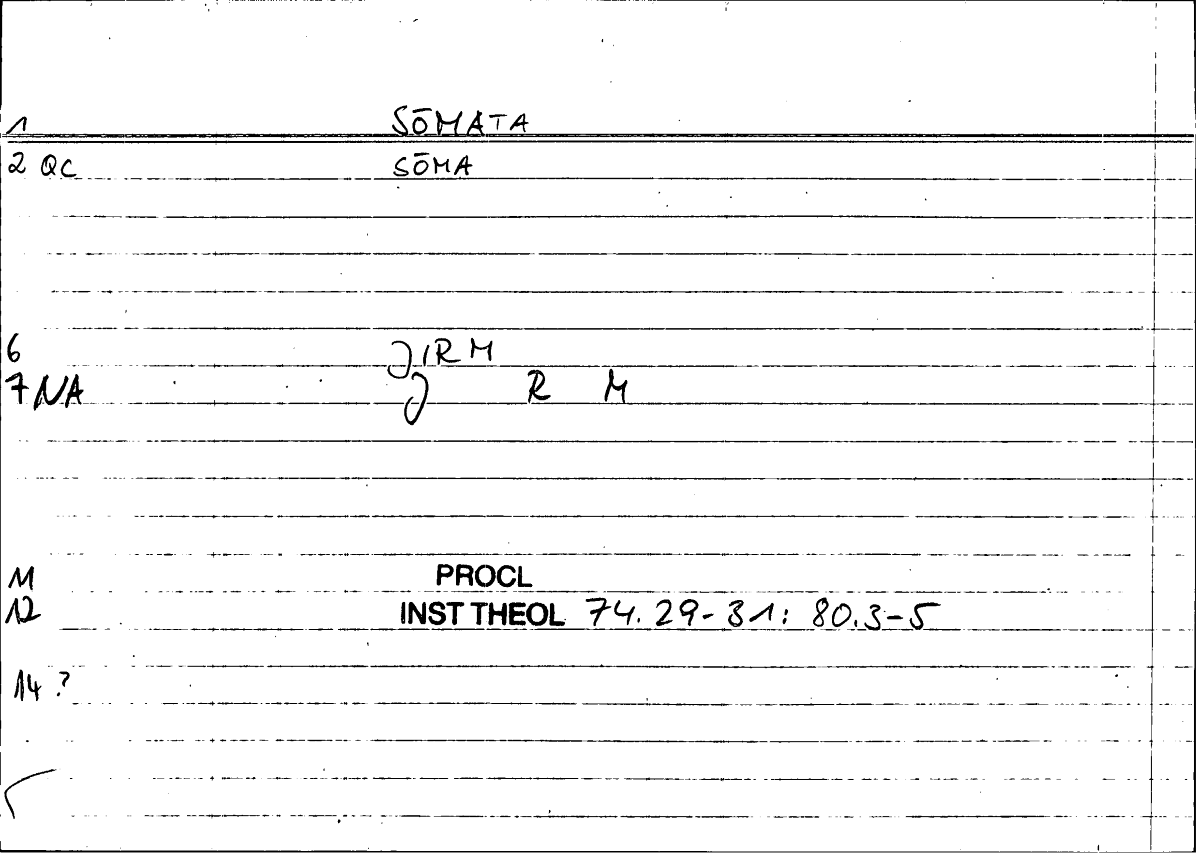 1 SŌMATA
2 QC SŌMA
6 JIRM
7 NA J R M
11 PROCL
12 INST THEOL 74.29-31: 80.3-5
14 ?